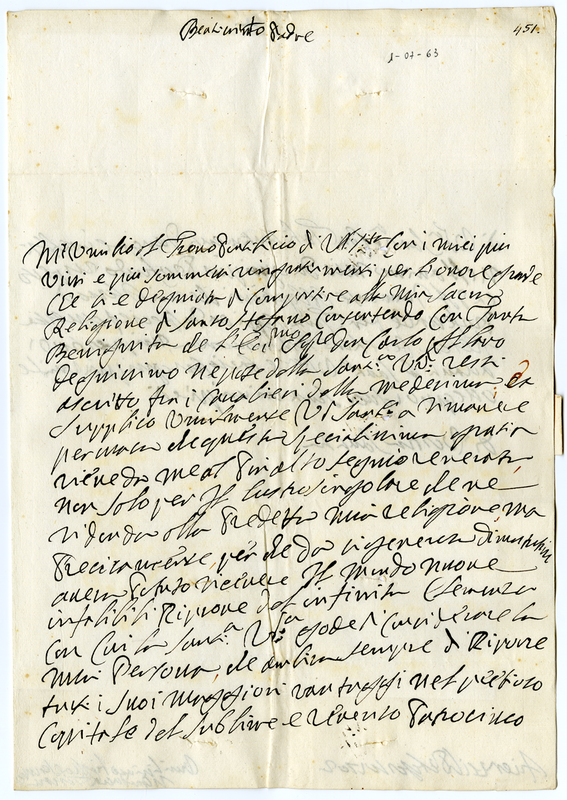 Beatissimo Padre
451.
1-07-63
M'Umilio al Trono Pontificio di V. S.tà con i miei più
vivi e più sommessi ringraziamenti per l'onore grande
che si è degniata di compartire alla mia sacra
Religione di Santo Stefano consentendo con tanta
Benignità che l'Ecc.mo Sig.re Don Carlo Albano
degnissimo nepote della Santità V.a resti
ascritto fra i cavalieri della medesima, e
supplico umilmente V. Santità a rimanere
persuasa che questa specialissima grazia
ricevuta me al più alto segnio venerata
non solo per il lustro singolare che ne
ridonda alla predetta mia religione, ma
precisamente per che da
aver potuto ricevere il mondo nuove
infallibili riprove del infinita clemenza
con cui la Santità V.ra gode di considerare la
mia Persona, che ambisce sempre di riporre
tutti i suoi maggiori vantaggi nel prezioso
Capitale del sublime e reverito Patrocinio